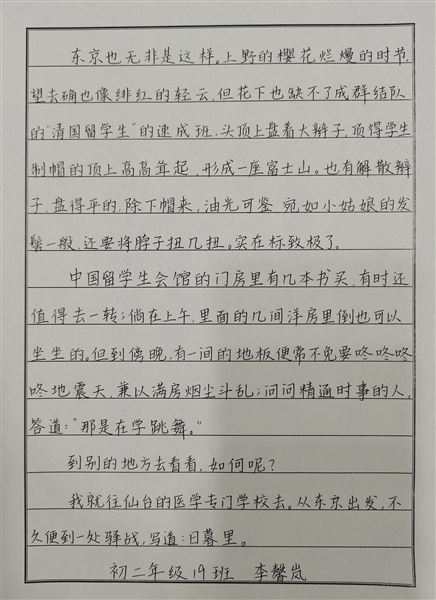 东京也无非是这样。上野的樱花烂熳的时节,
望去确也像绯红的轻云,但花下也缺不了成群结队
的"清国留学生"的速成班,头顶上盘着大辫子,顶得学生
制帽的顶上高高耸起,形成一座富士山。也有解散辫
子,盘得平的,除下帽来,油光可鉴,宛如小姑娘的发
髻一般,还要将脖子扭几扭。实在标致极了。
中国留学生会馆的门房里有几本书买,有时还
值得去一转;倘在上午,里面的几间洋房里倒也可以
坐坐的。但到傍晚,有一间的地板便常不免要咚咚咚
咚地震天,兼以满房烟尘斗乱;问问精通时事的人,
答道:"那是在学跳舞。"
到别的地方去看看,如何呢?
我就往仙台的医学专门学校去。从东京出发,不
久便到一处驿战,写道:日暮里。
初二年级19班 李馨岚